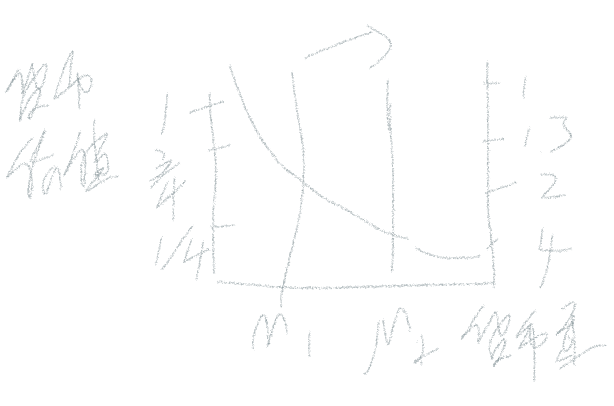 货币
价值
1
3/4
1/4
1
1.3
2
4
M1
M2
货币量